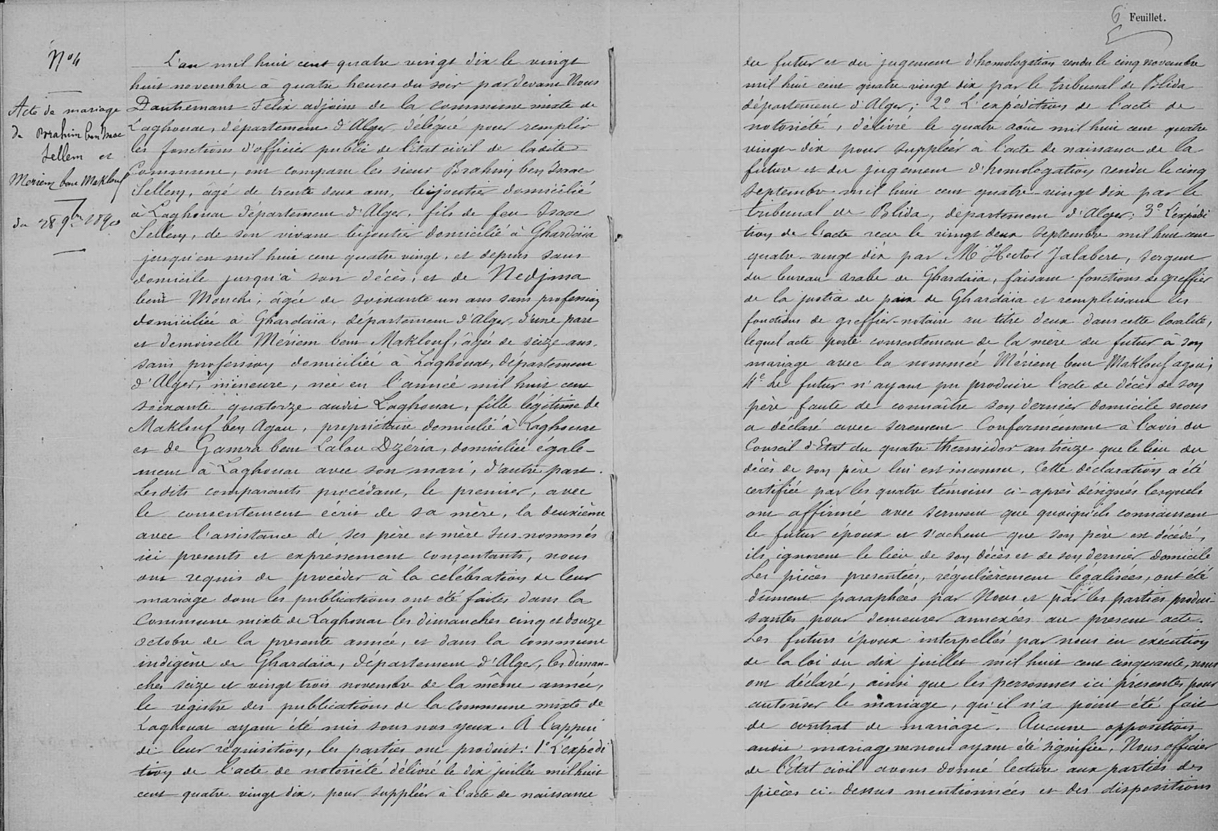 6 Feuillet.
N° 4
Acte de mariage
de Brahim ben Isaac
Sellem et
Mériem bent Maklouf
du 28 9bre 1890
L'an mil huit cent quatre vingt dix le vingt
huit novembre à quatre heures du soir par devant Nous
Félix adjoint de la commune mixte de
Laghouat, département d'Alger, délégué pour remplir
les fonctions d'officier public de l'état civil de ladite
Commune, ont comparu les sieur Brahim ben Isaac
Sellem, âgé de trente deux ans, bijoutier domicilié
à Laghouat département d'Alger, fils de feu Isaac
Sellem, de son vivant bijoutier domicilié à Ghardaïa
jusqu'en mil huit cent quatre vingt, et depuis sans
domicile jusqu'à son décès, et de Nedjma
bent Mouchi, âgée de soixante un ans sans profession
domiciliée à Ghardaïa, département d'Alger, d'une part
et demoiselle Mériem bent Maklouf, âgée de seize ans
sans profession domiciliée à Laghouat, département
d'Alger, mineure, née en l'année mil huit cent
soixante quatorze audit Laghouat, fille légitime de
Maklouf ben Agou, propriétaire domicilié à Laghouat
et de Gamra bent Lalou Dzéria, domiciliée égale-
ment à Laghouat avec son mari, d'autre part.
Lesdits comparants procédant, le premier, avec
le consentement écrit de sa mère, la deuxième
avec l'assistance de ses père et mère sus-nommés
ici présents et expressément consentants, nous
ont requis de procéder à la célébration de leur
mariage dont les publications ont été faites dans la
Commune mixte de Laghouat les dimanches cinq et douze
octobre de la présente année, et dans la commune
indigène de Ghardaïa, département d'Alger, les diman-
ches seize et vingt trois novembre de la même année,
le registre des publications de la commune mixte de
Laghouat ayant été mis sous nos yeux. A l'appui
de leur réquisition, les parties ont produit: 1° L'expédi
tion de l'acte de notoriété délivré le dix juillet mil huit
cent quatre vingt dix, pour suppléer à l'acte de naissance
du futur et du jugement d'homologation rendu le cinq novembre
mil huit cent quatre vingt dix par le tribunal de Blida
département d'Alger; 2° L'expédition de l'acte de
notoriété, délivré le quatre août mil huit cent quatre
vingt-dix pour suppléer à l'acte de naissance de la
future et du jugement d'homologation rendu le cinq
septembre mil huit cent quatre-vingt dix par le
tribunal de Blida, département d'Alger, 3° L'expédi
tion de l'acte reçu le vingt deux septembre mil huit cent
quatre-vingt dix par M. Hector Jalabert, sergent
du bureau arabe de Ghardaïa, faisant fonctions de greffier
de la justice de paix de Ghardaïa et remplissant les
fonctions de greffier-notaire au titre deux dans cette localité,
lequel acte porte consentement de la mère du futur à son
mariage avec la nommée Mériem bent Maklouf agou;
4° Le futur n'ayant pu produire l'acte de décès de son
père faute de connaître son dernier domicile nous
a déclaré avec serment conformément à l'avis du
Conseil d'Etat du quatre thermidor an treize que le lieu du
décès de son père lui est inconnu. Cette déclaration a été
certifiée par les quatre témoins ci-après désignés lesquels
ont affirmé avec serment que quoiqu'ils connaissent
le futur époux et sachent que son père est décédé,
ils ignorent le lieu de son décès et de son dernier domicile
Les pièces présentées, régulièrement légalisées, ont été
dûment paraphées par Nous et par les parties produi
santes pour demeurer annexées au présent acte.
Les futurs époux interpellés par nous en exécution
de la loi du dix juillet mil huit cent cinquante, nous
ont déclaré, ainsi que les personnes ici présentes pour
autoriser le mariage, qu'il n'a point été fait
de contrat de mariage. Aucune opposition
audit mariage ne nous ayant été signifiée, Nous officier
de l'Etat civil avons donné lecture aux parties des
pièces ci-dessus mentionnées et des dispositions